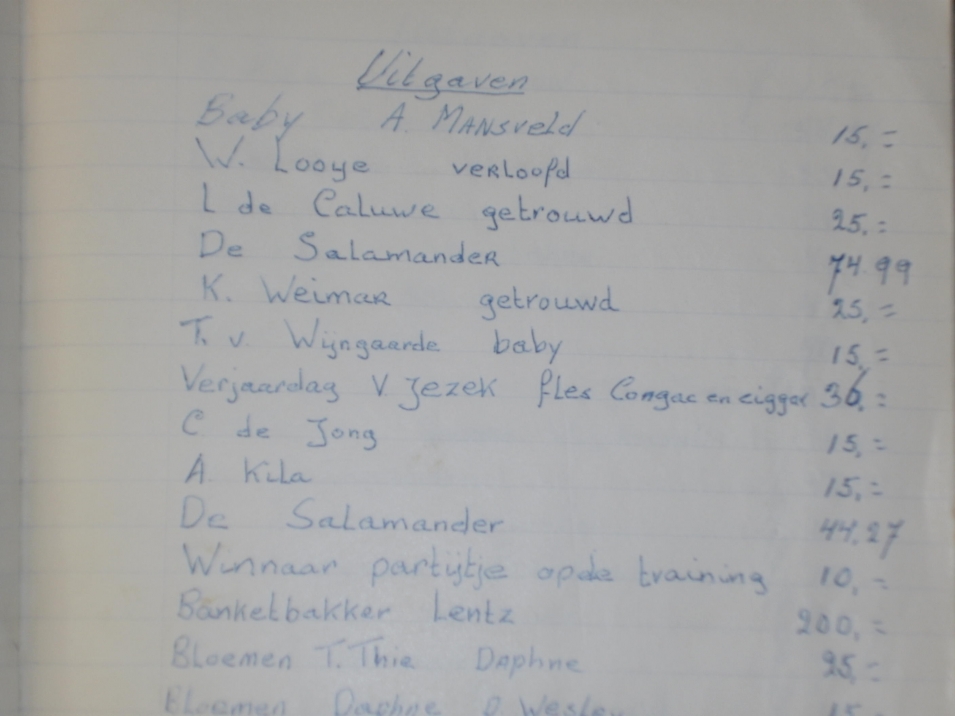 Uitgaven
Baby A. Mansveld 15,=
W. Looye verloofd 15,=
L de Caluwe getrouwd 25,=
De Salamander 74.99
K. Weimar getrouwd 25,=
T. v. Wijngaarde baby 15,=
Verjaardag V. Jezek fles Congac en ciggar 36,=
C de Jong 15,=
A. Kila 15,=
De Salamander 44,27
Winnaar partijtje op de training 10,=
Banketbakker Lentz 200,=
Bloemen T. Thie Daphne 25,=
Bloemen Daphne D. Wesley 15